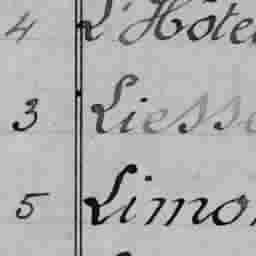 4 L'Hôte
3 Liesse
5 Limo